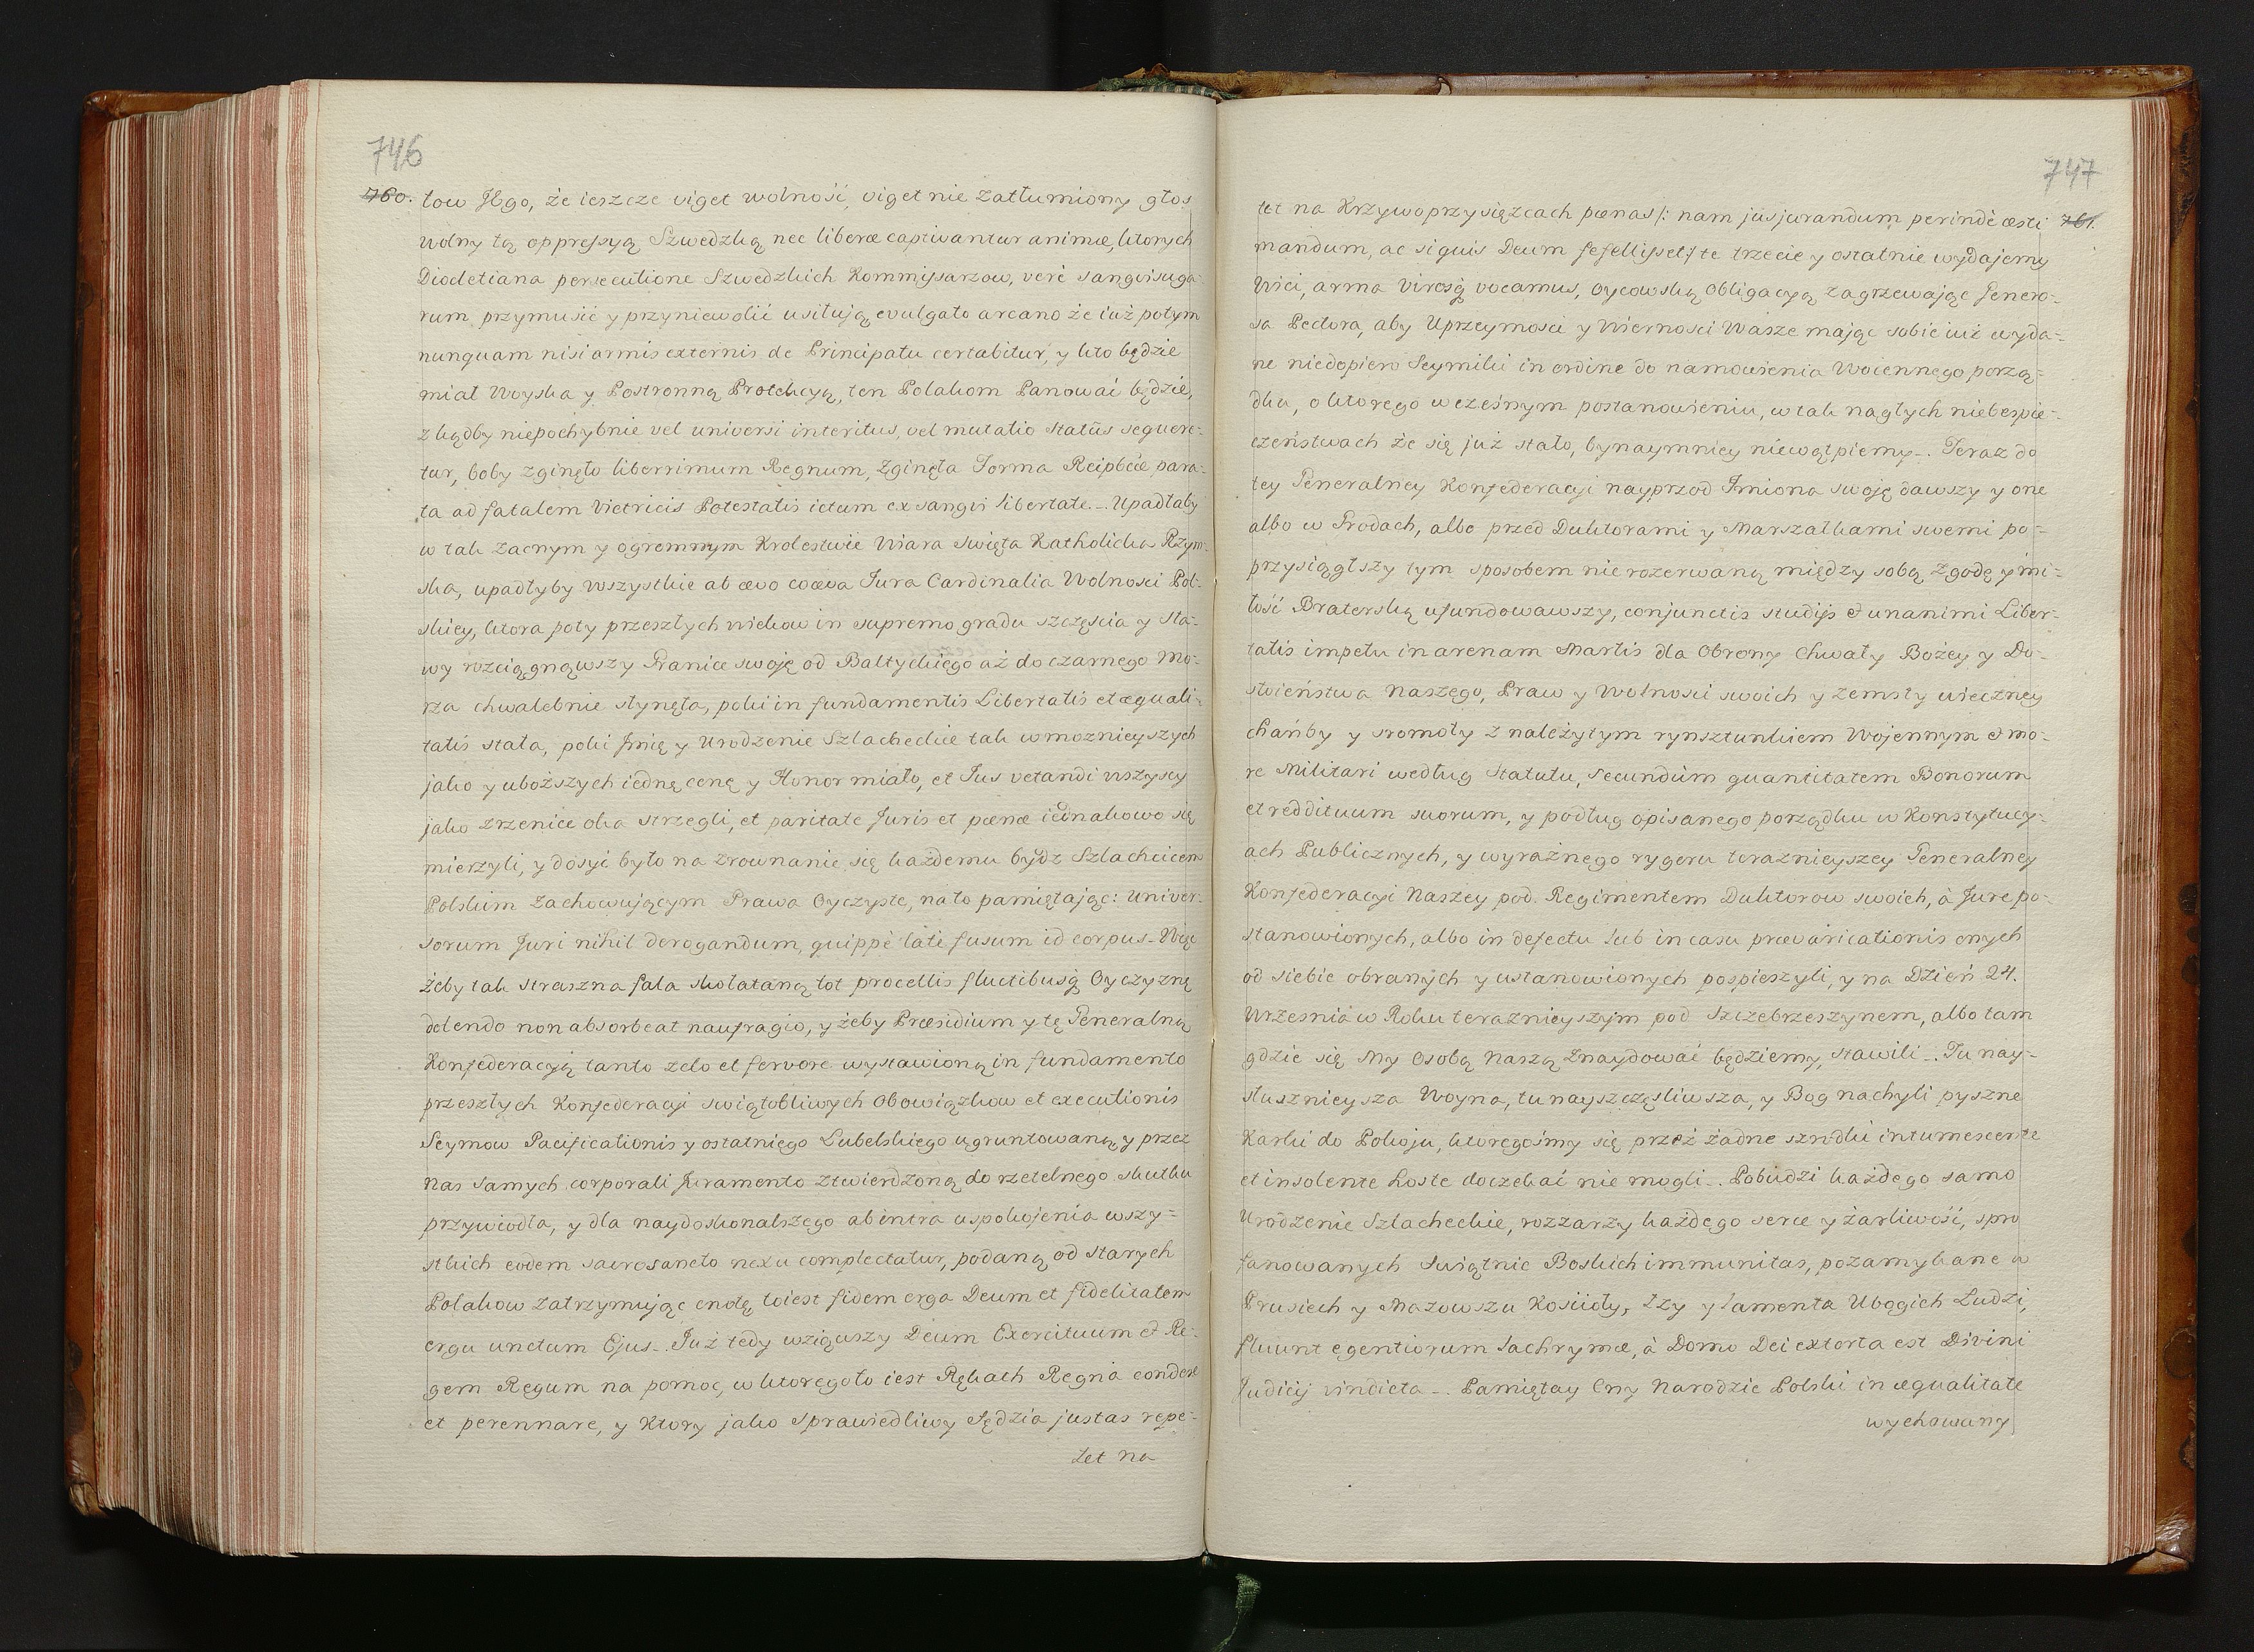 746
760.
tow Jego, że ieszcze viget wolność, viget nie zatłumiony głos
Wolny tą oppressyą Szwedzką nec liberæ captivantur animæ, ktorych
Diocletiana persecutione Szwedzkich Kommissarzow, verè sangvisuga-
rum przymusić y przyniewolić usiłują evulgato arcano że iuż potym
nunquam nisi armis externis de Principatu certabitur, y kto będzie
miał Woyska y Postronną Protekcyą, ten Polakom Panować będzie,
zkądby niepochybnie vel universi interitus, vel mutatio statûs seguere-
tur, boby zginęło liberrimum Regnum, zginęła Forma Reipbcæ para-
ta ad fatalem Victricis Potestatis ictum exsangvi libertate. Upadłaby
w tak zacnym y ogromnym Krolestwie Wiara Swięta Katholicka Rzym-
ska, upadłyby wszystkie ab ævo coæva Jura Cardinalia Wolnosci Pol-
skiey, ktora poty przeszłych wiekow in supremo gradu szczęścia y sta-
wy rozciągnąwszy Granice swoję od Baltyckiego aż do czarnego Mo-
rza chwalebnie słynęła, poki in fundamentis Libertatis et æquali-
tatis stała, poki Jmię y Urodzenie Szlacheckie tak w moznieyszych
jako y uboższych iednę cenę y Honor miało, et Jus vetandi wszyscy
jako zrzenice oka strzegli, et paritate Juris et pœnæ iednakowo się
mierzyli, y dosyć było na zrownanie się każdemu bydź Szlachcicem
Polskim zachowującym Prawa Oyczyste, na to pamiętając: univer-
sorum Juri nihil derogandum, quippè latè fusum id corpus. Więc
żeby tak straszna fala skołataną tot procellis fluctibusq Oyczyznę
delendo non absorbeat naufragio, y żeby Præsidium y tę Generalną
Konfederacyą tanto zelo et fervore wystawioną in fundamento
przeszłych Konfederacyi swiątobliwych Obowiązkow et executionis
Seymow Pacificationis y ostatniego Lubelskiego ugruntowaną y przez
nas samych corporali Juramento ztwierdzoną do rzetelnego skutku
przywiodła, y dla naydoskonalszego ab intra uspokojenia wszy-
stkich eodem sacrosancto nexu complectatur, podaną od starych
Polakow zatrzymując cnotę, toiest fidem erga Deum et fidelitatem
erga unctum Ejus. Już tedy wziąwszy Deum Exercituum et Re-
gem Regum na pomoc, w ktorego to iest Rękach Regna condere
et perennare, y Ktory jako Sprawiedliwy Sędzia justas repe-
tet na
747
761.
tet na Krzywoprzysięzcach pœnas /: nam jusjurandum perindè æsti
mandum, ac siquis Deum fefellisset :/ te trzecie y ostatnie wydajemy
Wici, arma Virosq vocamus, oycowską Obligacyą zagrzewając Genero-
sa Pectora, aby Uprzeymosci y Wiernosci Wasze mając sobie iuż wyda-
ne niedopiero Seymiki in ordine do namowienia Woiennego porzą-
dku, o ktorego wczesnym postanowieniu, w tak nagłych niebespie-
czeństwach że się już stało, bynaymniey niewątpiemy. Teraz do
tey Generalney Konfederacyi nayprzod Jmiona swoję dawszy y one
albo w Grodach, albo przed Duktorami y Marszałkami swemi po-
przysiągłszy tym sposobem nierozerwaną między sobą zgodę y mi-
łość Braterską ufundowawszy, conjunctis studijs et unanimi Liber-
tatis impetu in arenam Martis dla Obrony Chwały Bożey y Do-
stoieństwa Naszego, Praw y Wolnosci swoich y zemsty wieczney
chańby y sromoty z należytym rynsztunkiem Wojennym et mo-
re Militari według Statutu, secundùm quantitatem Bonorum
et reddituum suorum, y podług opisanego porządku w Konstytucy-
ach Publicznych, y wyraźnego rygoru teraznieyszey Generalney
Konfederacyi Naszey pod Regimentem Duktorow swoich, à Jure po-
stanowionych, albo in defectu lub in casu prævaricationis onych
od siebie obranych y ustanowionych pospieszyli, y na Dzień 24.
Wrzesnia w Roku teraznieyszym pod Szczebrzeszynem, albo tam
gdzie się My Osobą Naszą znaydować będziemy, stawili. Tu nay-
słusznieysza Woyna, tu nayszczęsliwsza, y Bog nachyli pyszne
Karki do Pokoju, ktoregośmy się przez żadne srzodki intumescente
et insolente hoste doczekać nie mogli. Pobudzi każdego samo
Urodzenie Szlacheckie, rozzarzy każdego serce y żarliwość, spro
fanowanych Swiątnic Boskich immunitas, pozamykane w
Prusiech y Mazowszu Kościoły, łzy y lamenta Ubogich Ludzi,
fluunt egentiorum lachrymæ, à Domo Dei extorta est Divini
Judicij vindicta. Pamiętay Cny Narodzie Polski in æqualitate
wychowany